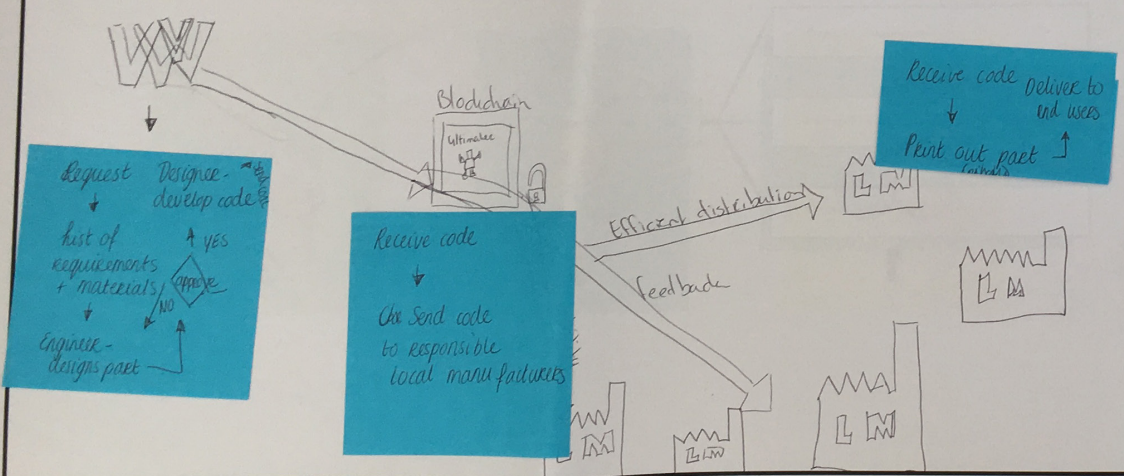 VW
Request
↓
List of
requirements
+ materials
↓
Engineer-
designs part
approve
NO
YES
Designer-
develop code
Blockchain
Ultimaker
Receive code
↓
Send code
to responsible
local manufacturers
Efficent distribution
feedback
Receive code
↓
Print out part
Deliver to
end users
LM
LM
LM
LM
LM